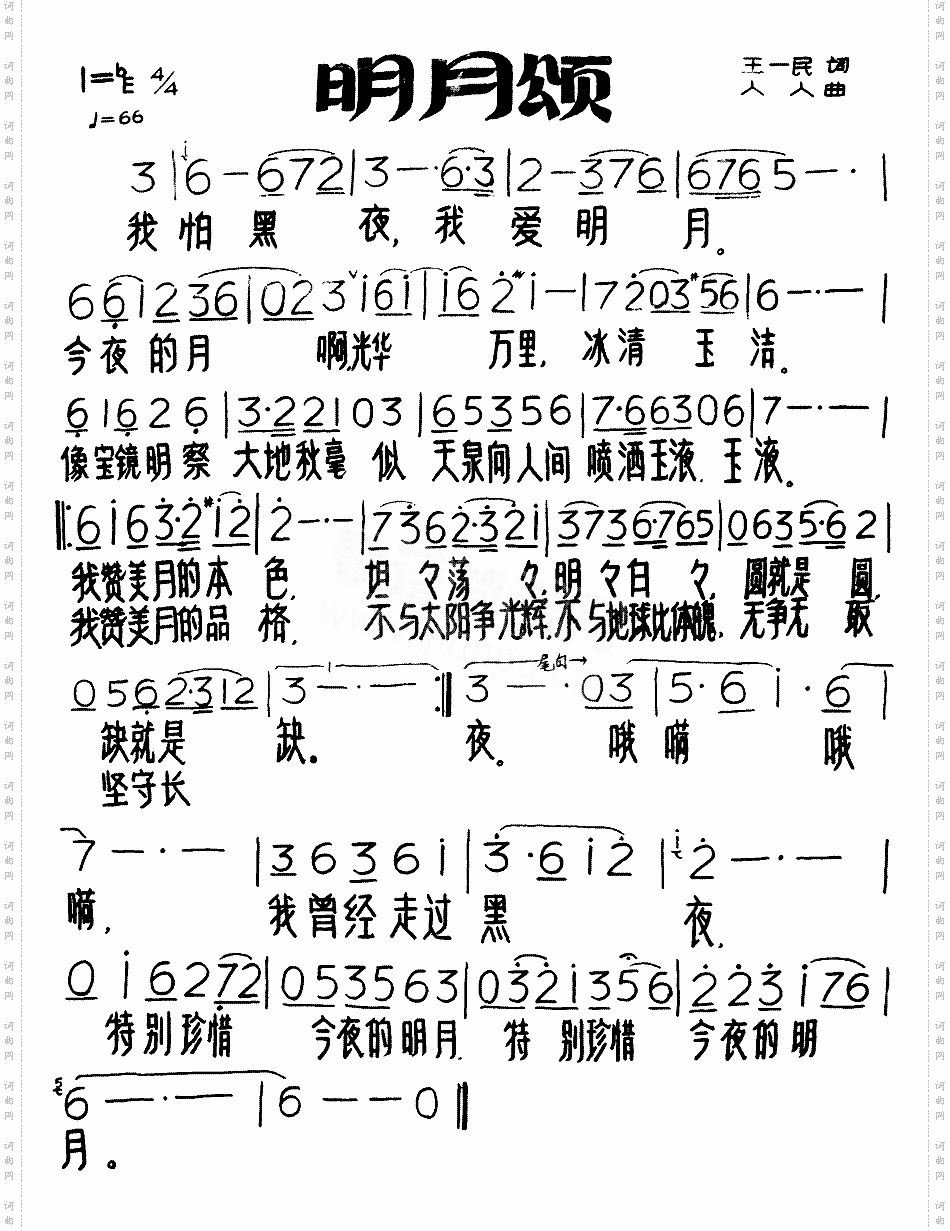 明月颂
1=♭E 4/4
♩=66
王一民 词
人人 曲
3 | 6 - 672 | 3 - · 6·3 | 2 - 376 | 6765 - · |
我怕黑 夜,我 爱明 月。
6 61 2 36 | 02 3 i6i | i6 2 i - | 7 203 #56 | 6 - · - |
今夜的月 啊,光华 万里,冰清 玉 洁。
6 i6 2 6 | 3·2 2 1 0 3 | 6 5 3 5 6 | 7·6 6 3 0 6 | 7 - · - |
像宝镜明察 大地秋毫 似 天泉向人间 喷洒玉液.玉液。
‖: 6 i 6 3·2 #i2 | 2 - · - | 7 3 6 2·3 2 i | 3 7 3 6·7 6 5 | 0 6 3 5·6 2 |
我赞美月的本 色, 坦々荡 々,明々白 々, 圆就是 圆,
我赞美月的品 格, 不与太阳争光辉,不与地球比体魄, 无争无 取
尾句→
0 5 6 2·3 1 2 | 3 - · - :‖ 3 - · 0 3 | 5 · 6 i · 6 |
缺就是 缺。 夜。 哦嗬 哦
坚守长
7 - · - | 3 6 3 6 i | 3 · 6 i 2 | 2 - · - |
嗬, 我曾经走过 黑 夜,
0 i 6 2 7 2 | 0 5 3 5 6 3 | 0 3 2 i 3 5 6 | 2 2 3 i 7 6 |
特别珍惜 今夜的明月. 特 别珍惜 今夜的明
6 - · - | 6 - - 0 ‖
月。
词曲网